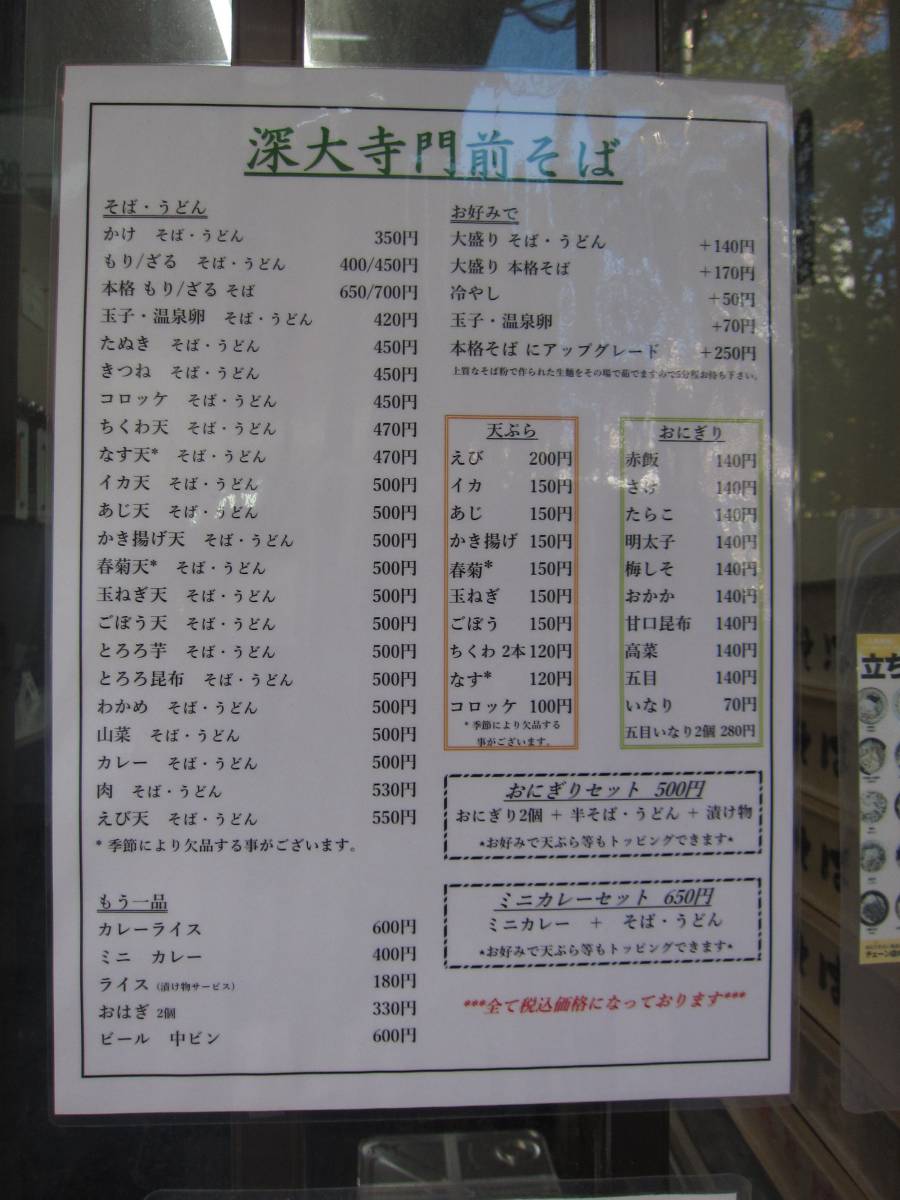 深大寺門前そば
そば・うどん
かけ そば・うどん 350円
もり/ざる そば・うどん 400/450円
本格 もり/ざる そば 650/700円
玉子・温泉卵 そば・うどん 420円
たぬき そば・うどん 450円
きつね そば・うどん 450円
コロッケ そば・うどん 450円
ちくわ天 そば・うどん 470円
なす天* そば・うどん 470円
イカ天 そば・うどん 500円
あじ天 そば・うどん 500円
かき揚げ天 そば・うどん 500円
春菊天* そば・うどん 500円
玉ねぎ天 そば・うどん 500円
ごぼう天 そば・うどん 500円
とろろ芋 そば・うどん 500円
とろろ昆布 そば・うどん 500円
わかめ そば・うどん 500円
山菜 そば・うどん 500円
カレー そば・うどん 500円
肉 そば・うどん 530円
えび天 そば・うどん 550円
* 季節により欠品する事がございます。
もう一品
カレーライス 600円
ミニ カレー 400円
ライス (漬け物サービス) 180円
おはぎ 2個 330円
ビール 中ビン 600円
お好みで
大盛り そば・うどん +140円
大盛り 本格そば +170円
冷やし +50円
玉子・温泉卵 +70円
本格そば にアップグレード +250円
上質なそば粉で作られた生麺をその場で茹でますので5分程お待ち下さい。
天ぷら
えび 200円
イカ 150円
あじ 150円
かき揚げ 150円
春菊* 150円
玉ねぎ 150円
ごぼう 150円
ちくわ 2本 120円
なす* 120円
コロッケ 100円
* 季節により欠品する
事がございます。
おにぎり
赤飯 140円
さけ 140円
たらこ 140円
明太子 140円
梅しそ 140円
おかか 140円
甘口昆布 140円
高菜 140円
五目 140円
いなり 70円
五目いなり2個 280円
おにぎりセット 500円
おにぎり2個 + 半そば・うどん + 漬け物
*お好みで天ぷら等もトッピングできます*
ミニカレーセット 650円
ミニカレー + そば・うどん
*お好みで天ぷら等もトッピングできます*
***全て税込価格になっております***
立ち